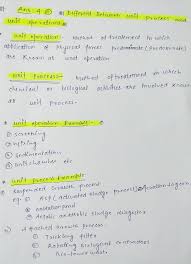 Ans-4 Different between unit process and
unit operation
unit operation - Method of treatment in which
application of Physical forces predominate (predominate)
are known as unit operation
unit Process - Method of treatment in which
chemical or biological activities are involved known
as unit process-
unit operation Example-
① screening
② mixing
③ sedimentation
unit process Example
① suspended Growth process
eg. ① ASP (Activated sludge process)
② Attached Growth process-
① Trickling filter
② Rotating Biological contractors